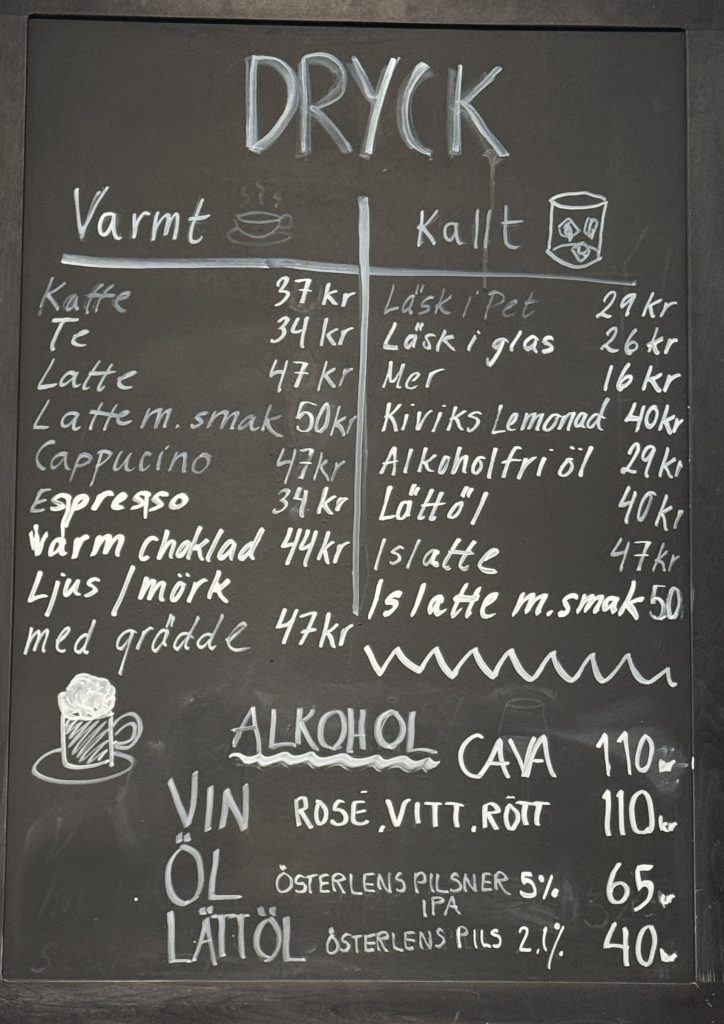 DRYCK
Varmt
Kaffe 37 kr
Te 34 kr
Latte 47 kr
Latte m. smak 50kr
Cappucino 47kr
Espresso 34 kr
Varm choklad 44kr
Ljus / mörk
med grädde 47kr
Kallt
Läsk i Pet 29 kr
Läsk i glas 26 kr
Mer 16 kr
Kiviks Lemonad 40kr
Alkoholfri öl 29kr
Lättöl 40kr
Islatte 47kr
Islatte m.smak 50
ALKOHOL
CAVA 110 kr
VIN ROSÉ, VITT, RÖTT 110 kr
ÖL ÖSTERLENS PILSNER 5% 65 kr
IPA
LÄTTÖL ÖSTERLENS PILS 2,1% 40 kr